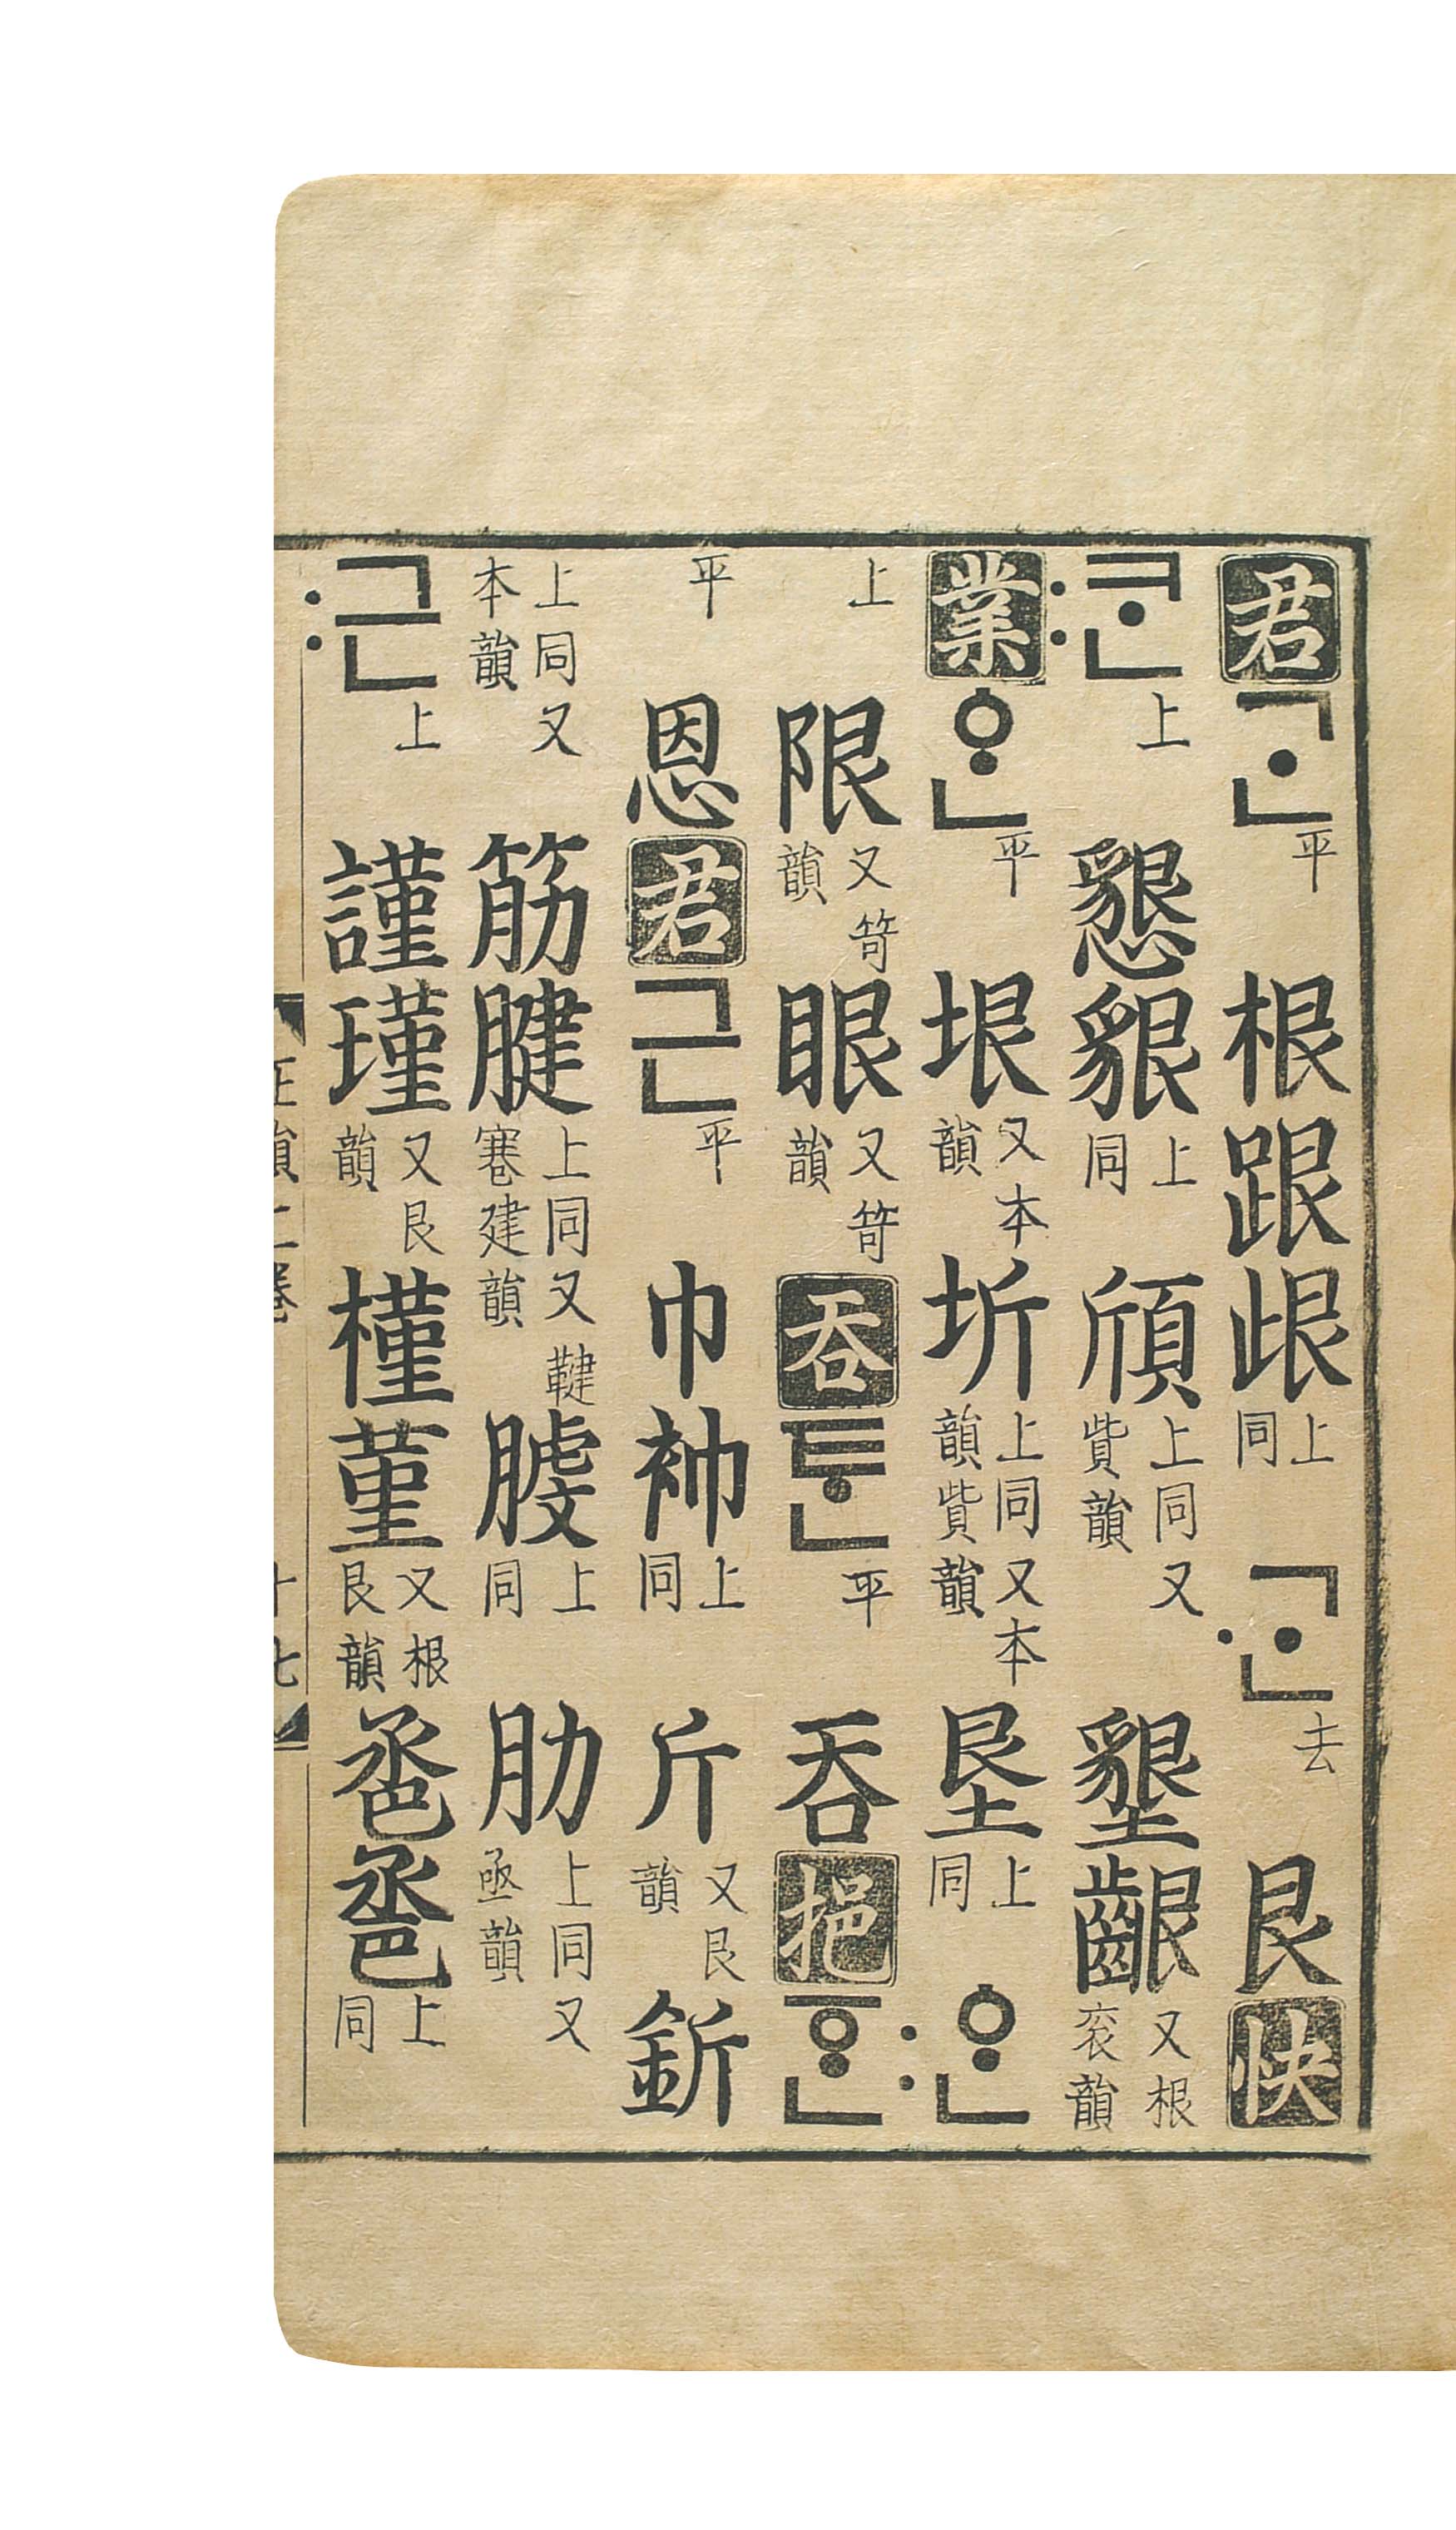 君 ᄀᆞᆫ 平 根跟 上同 ·ᄀᆞᆫ 去 艮 快
:ᄏᆞᆫ 上 懇貇 上同 頎 上同又貲韻 墾齦 又根衮韻
業 ᅌᆞᆫ 平 垠 又本韻 圻 上同又本韻貲韻 垦 上同 :ᅌᆞᆫ
上 限 又笴韻 眼 又笴韻 呑 ᄐᆞᆫ 平 呑 挹 ᅙᆞᆫ
平 恩 君 근 平 巾 上同 斤 又艮韻 釿
上同又本韻 筋腱 上同又鞬寋建韻 上同 肋 上同又亟韻
:근 上 謹瑾 又艮韻 槿堇 又根艮韻 巹 上同